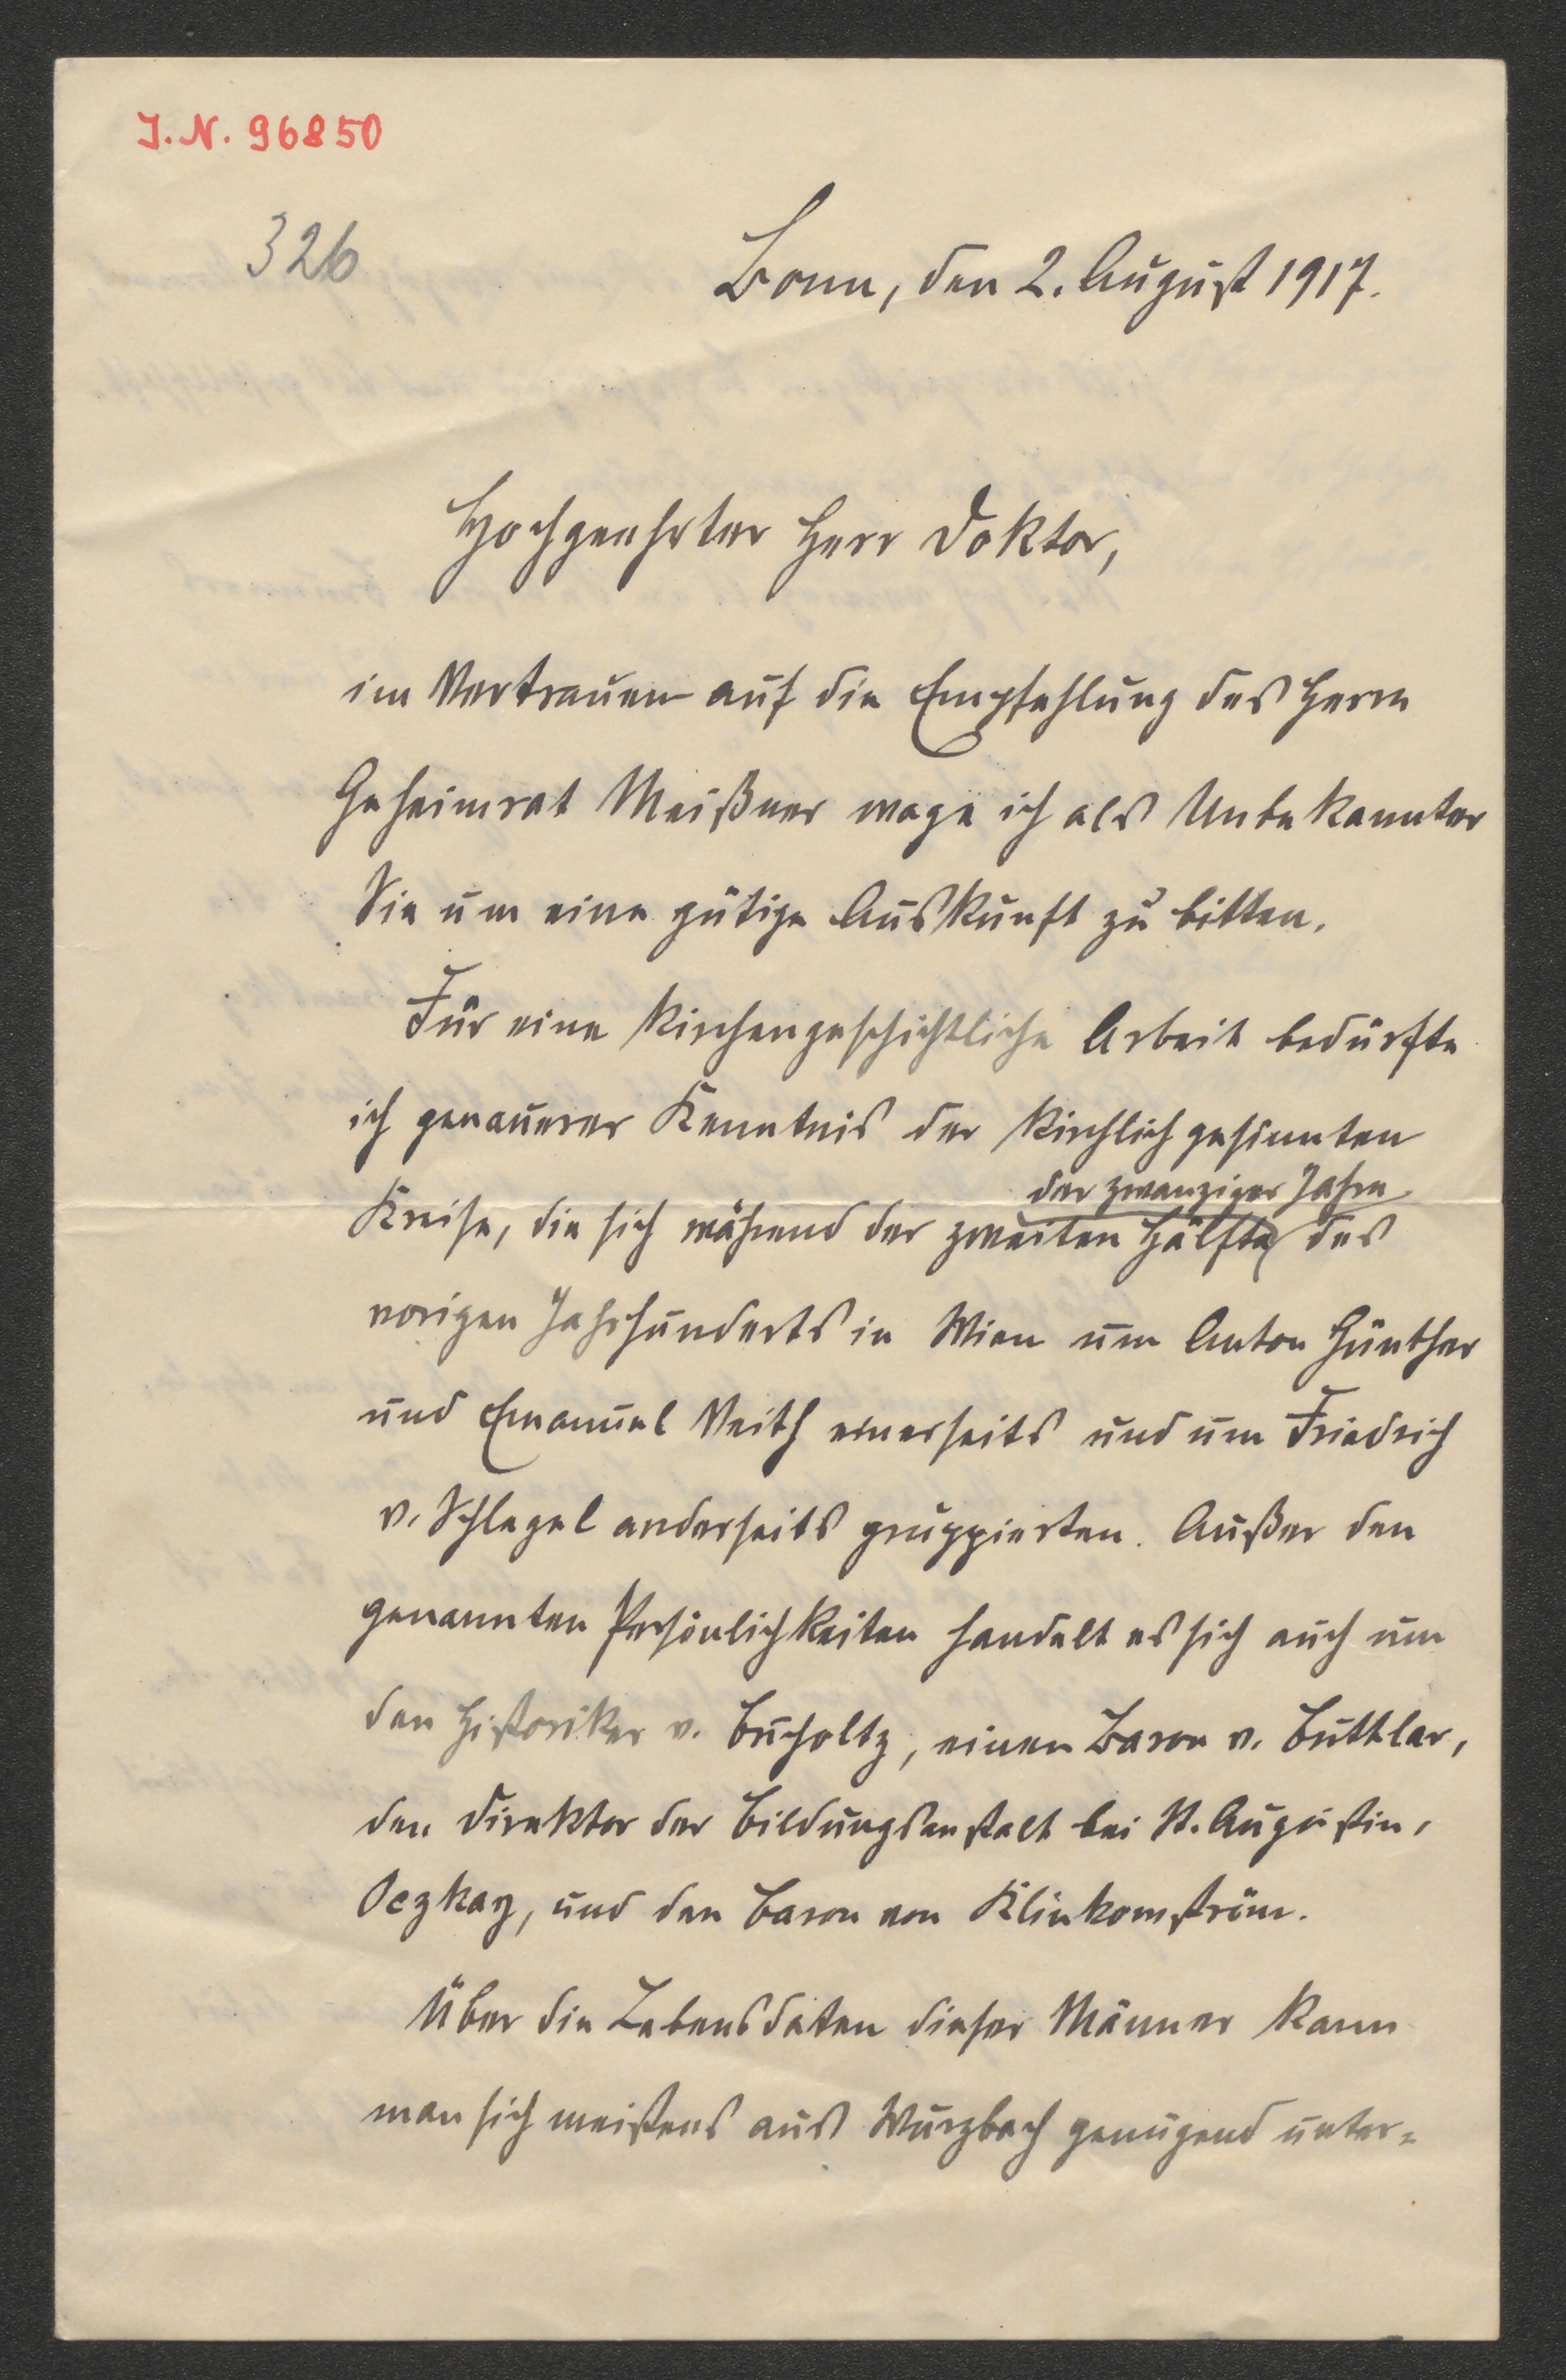 J.N. 96850
326
Bonn, den 2. August 1917.
Hochgeehrter Herr Doktor,
im Vertrauen auf die Empfehlung des Herrn
Geheimrat Meißner wage ich als Unbekannter
Sie um eine gütige Auskunft zu bitten.
Für eine kirchengeschichtliche Arbeit bedürfte
ich genauerer Kenntnis der kirchlich gesinnten
der zwanziger Jahre
Kreise, die sich während der zweiten Hälfte des
vorigen Jahrhunderts in Wien um Anton Günther
und Emanuel Veith einerseits und um Friedrich
v. Schlegel anderseits gruppierten. Außer den
genannten Persönlichkeiten handelt es sich auch um
den Historiker v. Bucholtz, einen Baron v. Buttlar,
den Direktor der Bildungsanstalt bei St. Augustin,
Oczkay, und den Baron von Klinkowström.
Über die Lebensdaten dieser Männer kann
man sich meistens aus Wurzbach genügend unter-